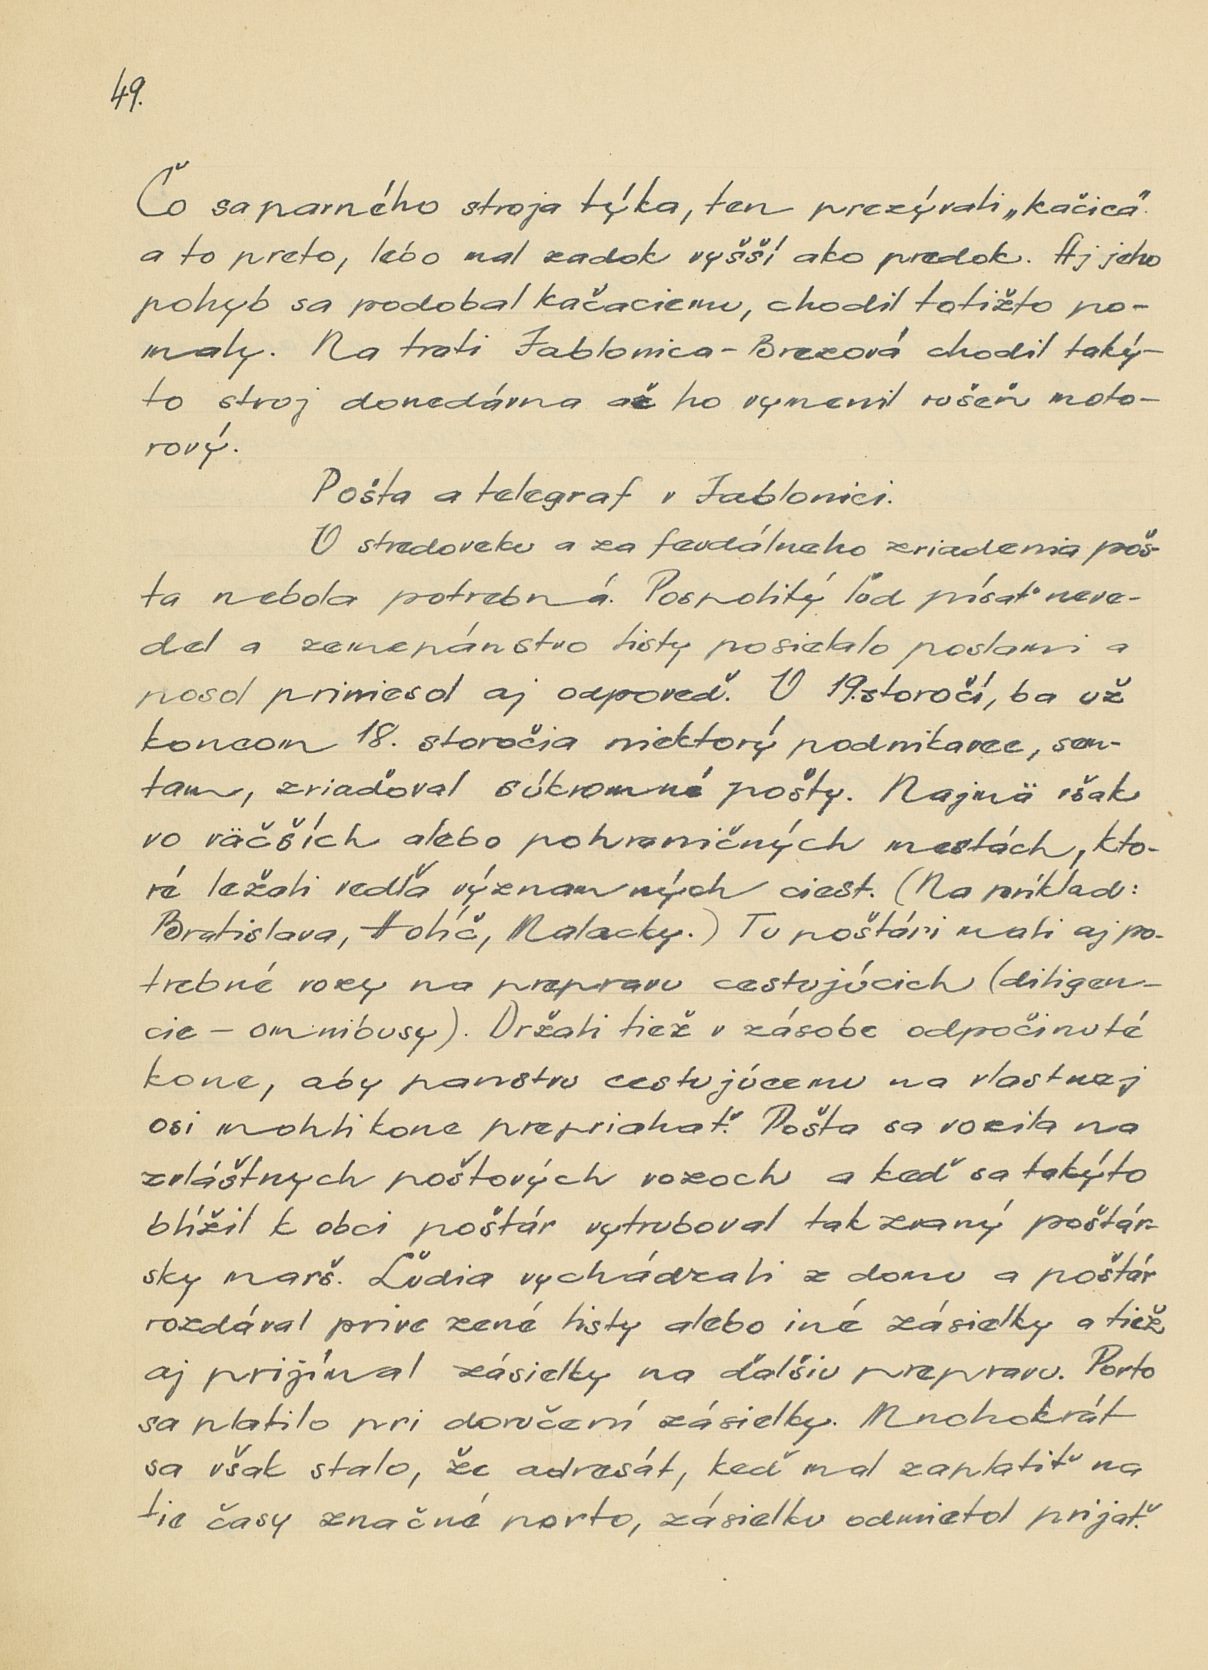 49.
Čo sa parného stroja týka, ten prezývali „kačica"
a to preto, lebo mal zadok vyšší ako predok. Aj jeho
pohyb sa podobal kačaciemu, chodil totižto po-
maly. Na trati Jablonica - Brezová chodil taký-
to stroj donedávna až ho vymenil rušeň moto-
rový.
Pošta a telegraf v Jablonici.
V stredoveku a za feudálneho zriadenia poš-
ta nebola potrebná. Pospolitý ľud písať neve-
del a zemepánstvo listy posielalo poslami a
posol priniesol aj odpoveď. V 19. storočí, ba už
koncom 18. storočia niektorý podnikavec, sem-
tam, zriaďoval súkromné pošty. Najmä však
vo väčších alebo pohraničných mestách, kto-
ré ležali vedľa významných ciest. (Na príklad:
Bratislava, Holíč, Malacky.) Tu poštári mali aj po-
trebné vozy na prepravu cestujúcich (diligen-
cie - omnibusy). Držali tiež v zásobe odpočinuté
kone, aby panstvu cestujúcemu na vlastnej
osi mohli kone prepriahať. Pošta sa vozila na
zvláštnych poštových vozoch a keď sa takýto
blížil k obci poštár vytruboval tak zvaný poštár-
sky marš. Ľudia vychádzali z domu a poštár
rozdával prive zené listy alebo iné zásielky a tiež
aj prijímal zásielky na ďalšiu prepravu. Porto
sa platilo pri doručení zásielky. Mnohokrát
sa však stalo, že adresát, keď mal zaplatiť na
tie časy značné porto, zásielku odmietol prijať.